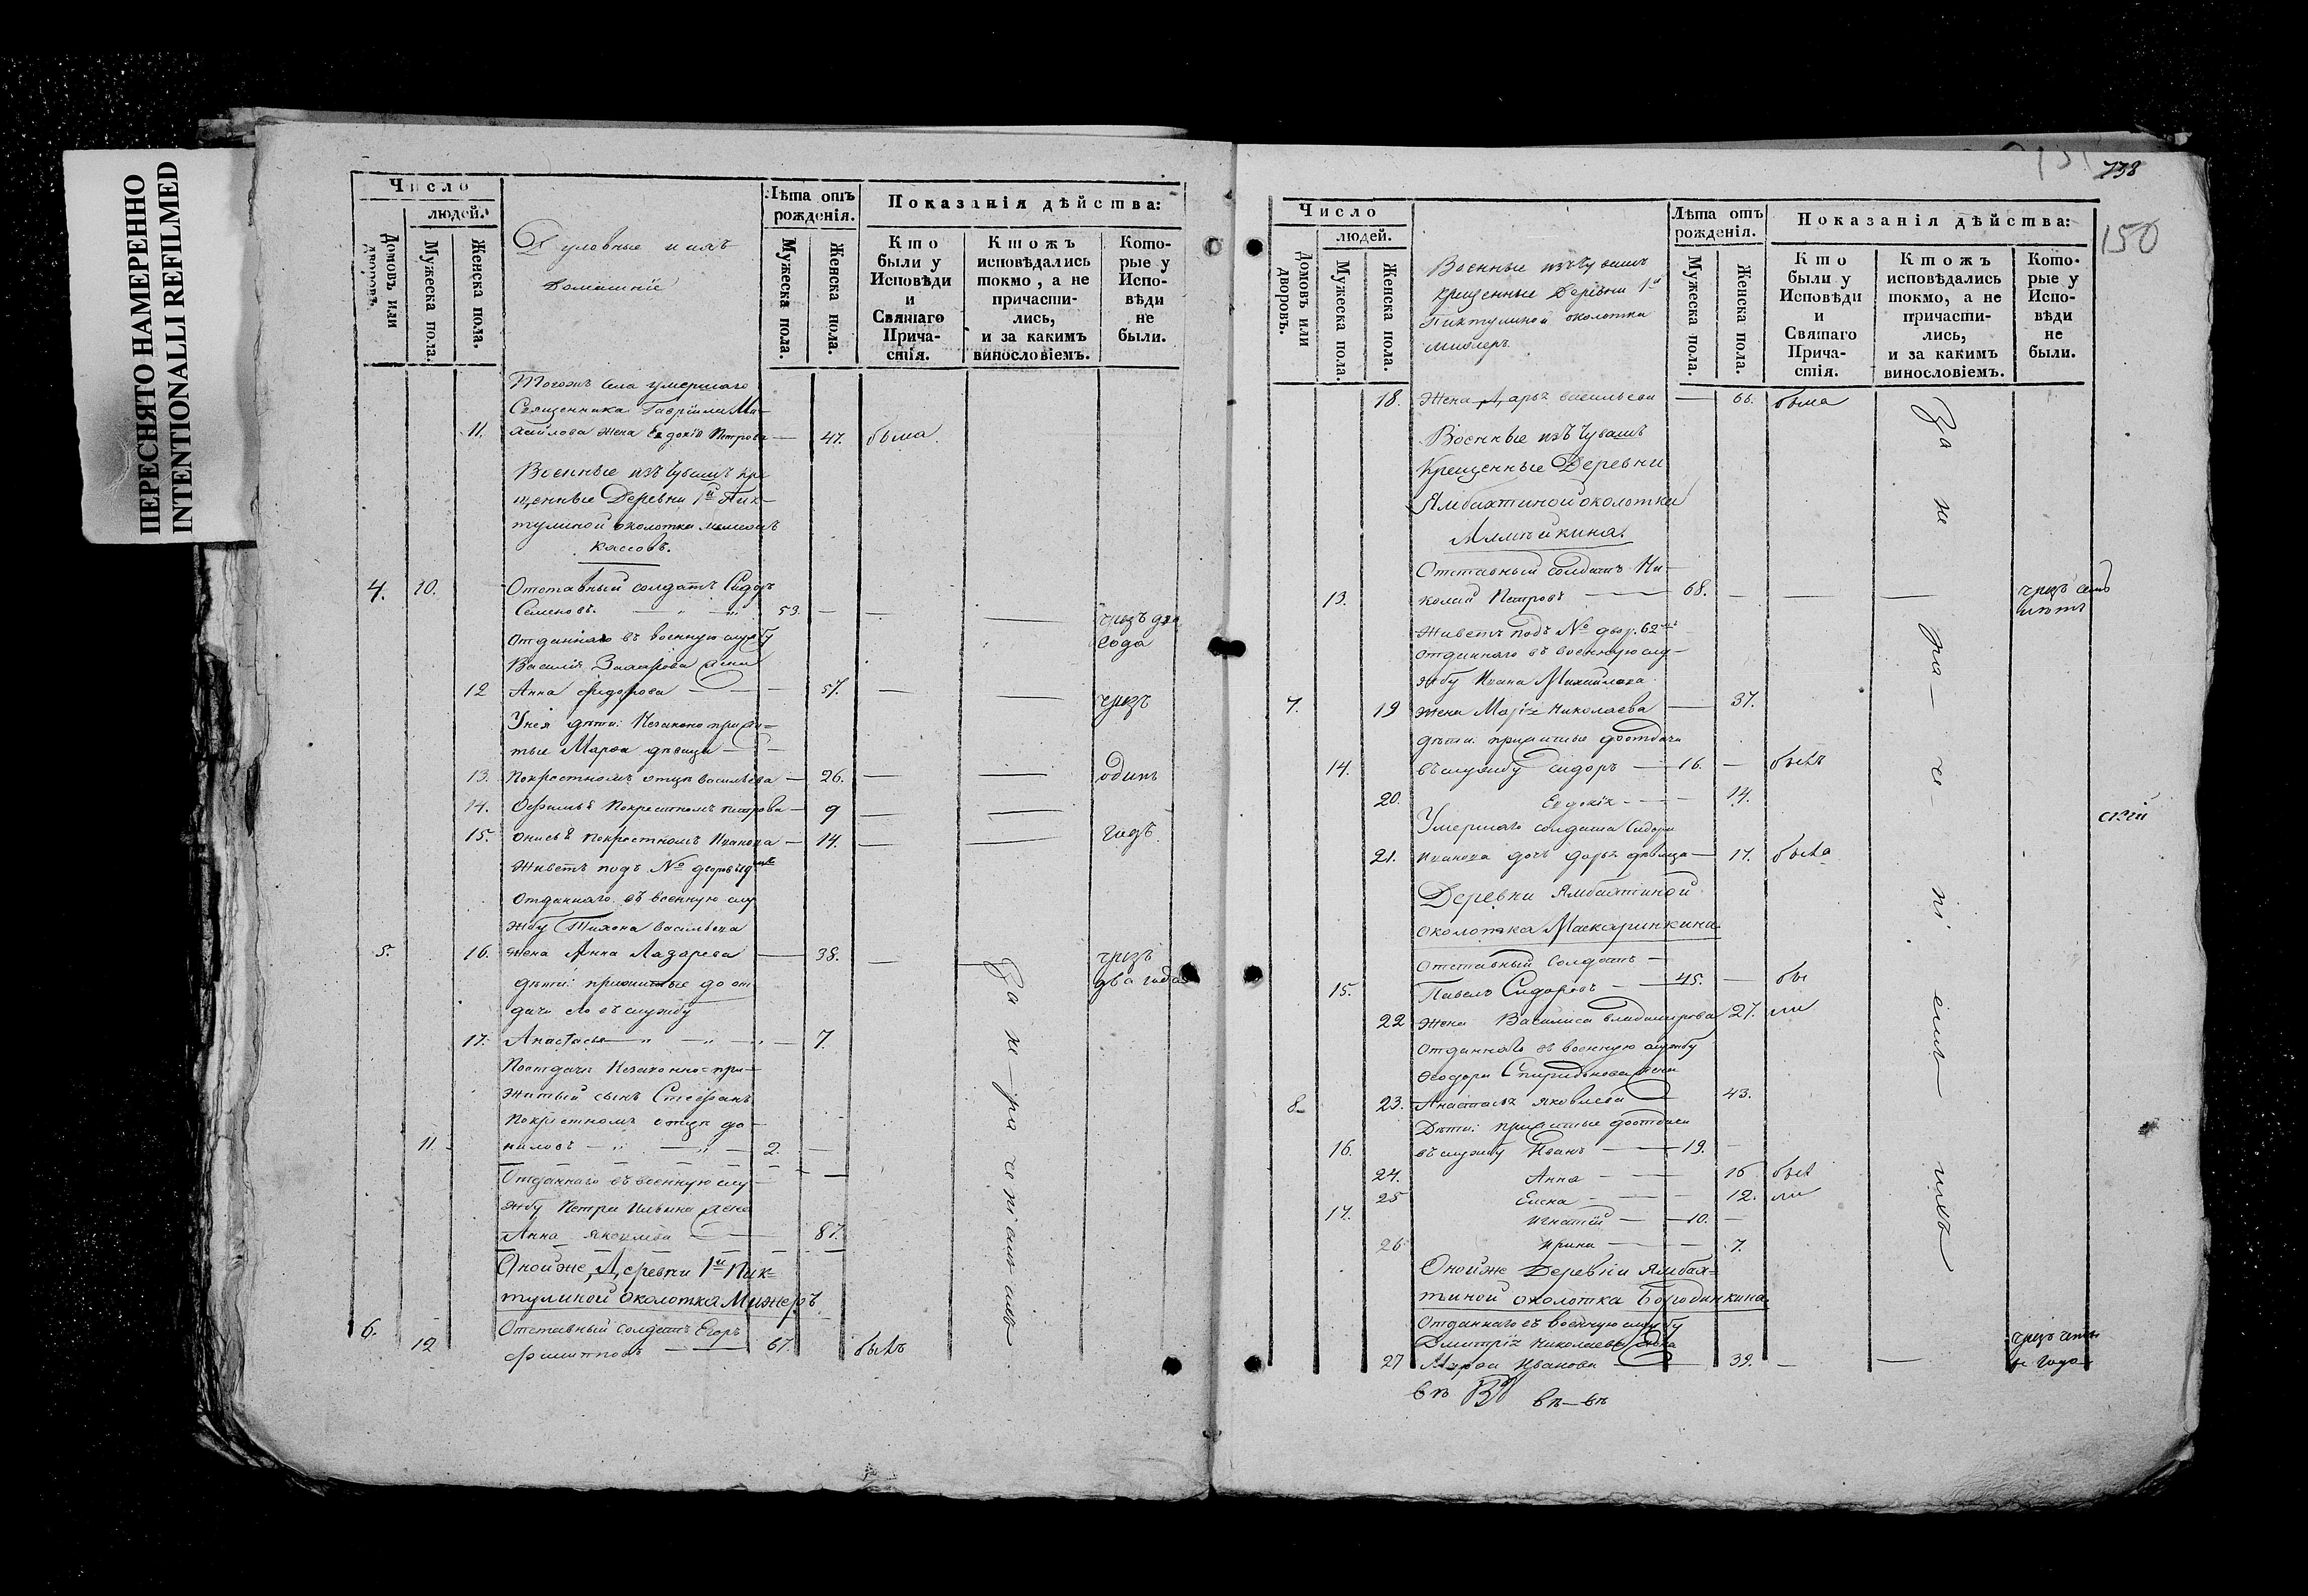 ПЕРЕСНЯТО НАМЕРЕННО
INTENTIONALLI REFILMED
Число
людей.
Домовъ или дворовъ.
Мужеска пола.
Женска пола.
Духовные и ихъ
домашніе
Лѣта отъ
рожденія.
Мужеска пола.
Женска пола.
Показанія дѣйства:
Кто
были у
Исповѣди
и
Святаго
Прича-
стія.
Ктожъ
исповѣдались
токмо, а не
причасти-
лись,
и за какимъ
винословіемъ.
Кото-
рые у
Испо-
вѣди
не
были.
Тогожъ села умершаго
Священника Гавріила Ми-
11. хайлова жена Евдокія Петрова — 47. была
Военные изъ Чувашъ кре
щенные Деревни 1й Пих-
тулиной околотка
кассовъ.
4. 10. Отставный солдатъ Сидоръ
Семеновъ. 53. — — — чрезъ два
года
Отданнаго въ военную службу
Василія Захарова жена
12 Анна Фидорова — 57. — — чрезъ
У нея дѣти: Незаконно прижи=
тые Марѳа дѣвица —
13. по крестномъ отцѣ Васильева — 26. — — одинъ
14. Офимья по крестномъ Петрова — 9 — —
15. Онисья по крестномъ Иванова — 14. — — годъ
Живетъ подъ № дворовъ
Отданнаго въ военную слу
жбу Тихона Васильева
5. 16. жена Анна Лазарева — 38. — — чрезъ
дѣти: прижитые до от два года
дачи его въ службу
17. Анастасья — 7.
По отдачѣ Незаконно=при-
житый сынъ Стефанъ
по крестномъ отцѣ да-
11. ниловъ — 2. —
Отданнаго въ военную слу-
жбу Петра Ильина жена
Анна Яковлева — 87.
Оной же Деревни 1й Пих=
тулиной околотка Мижеръ
6. Отставный солдатъ Егоръ
12 Филипповъ — 67. былъ
За не-ра че ні емъ ихъ
738
150
Число
людей.
Домовъ или дворовъ.
Мужеска пола.
Женска пола.
Военные изъ Чувашъ
крещенные Деревни 1й
Пихтулиной околотка
Мижеръ
Лѣта отъ
рожденія.
Мужеска пола.
Женска пола.
Показанія дѣйства:
Кто
были у
Исповѣди
и
Святаго
Прича-
стія.
Ктожъ
исповѣдались
токмо, а не
причасти-
лись,
и за какимъ
винословіемъ.
Кото-
рые у
Испо-
вѣди
не
были.
18. Жена Дарья Васильева — 66. была
Военные изъ Чувашъ
Крещенные Деревни
Ямбахтиной околотка
Отставный солдатъ Ни-
13. колай Петровъ — 68. — — — чрезъ семь
лѣтъ
Живетъ подъ № двор. 62мъ
отданнаго въ военную слу-
жбу Ивана Михайлова
7. 19 жена Марія Николаева — 37.
дѣти: прижитые до отдачи
14. въ службу Сидоръ — 16. — былъ
20. Евдокія — 14.
Умершаго солдата Сидора
21. Иванова дочь Дарья дѣвица — 17. была
Деревни Ямбахтиной
околотка Маскаринкина
Отставный Солдатъ —
15. Павелъ Сидоровъ — 45. — бы
22 жена Василиса Владимирова 27. ли
Отданнаго въ военную службу
Ѳеодора Спиридонова жена
8. 23. Анастасья Яковлева — 43.
Дѣти: прижитые до отдачи
16. въ службу Иванъ — 19. —
24. Анна — 16 бы
25 Елена — 12. ли
17. Игнатій — 10. —
26 Ирина — 7.
Оной же Деревни Ямбах=
тиной околотка Бородинкина
Отданнаго въ военную службу
Дмитрія Николаева жена чрезъ четы
27 Марѳа Иванова — 39. — — ре года
За не-ра-че-ні емъ ихъ